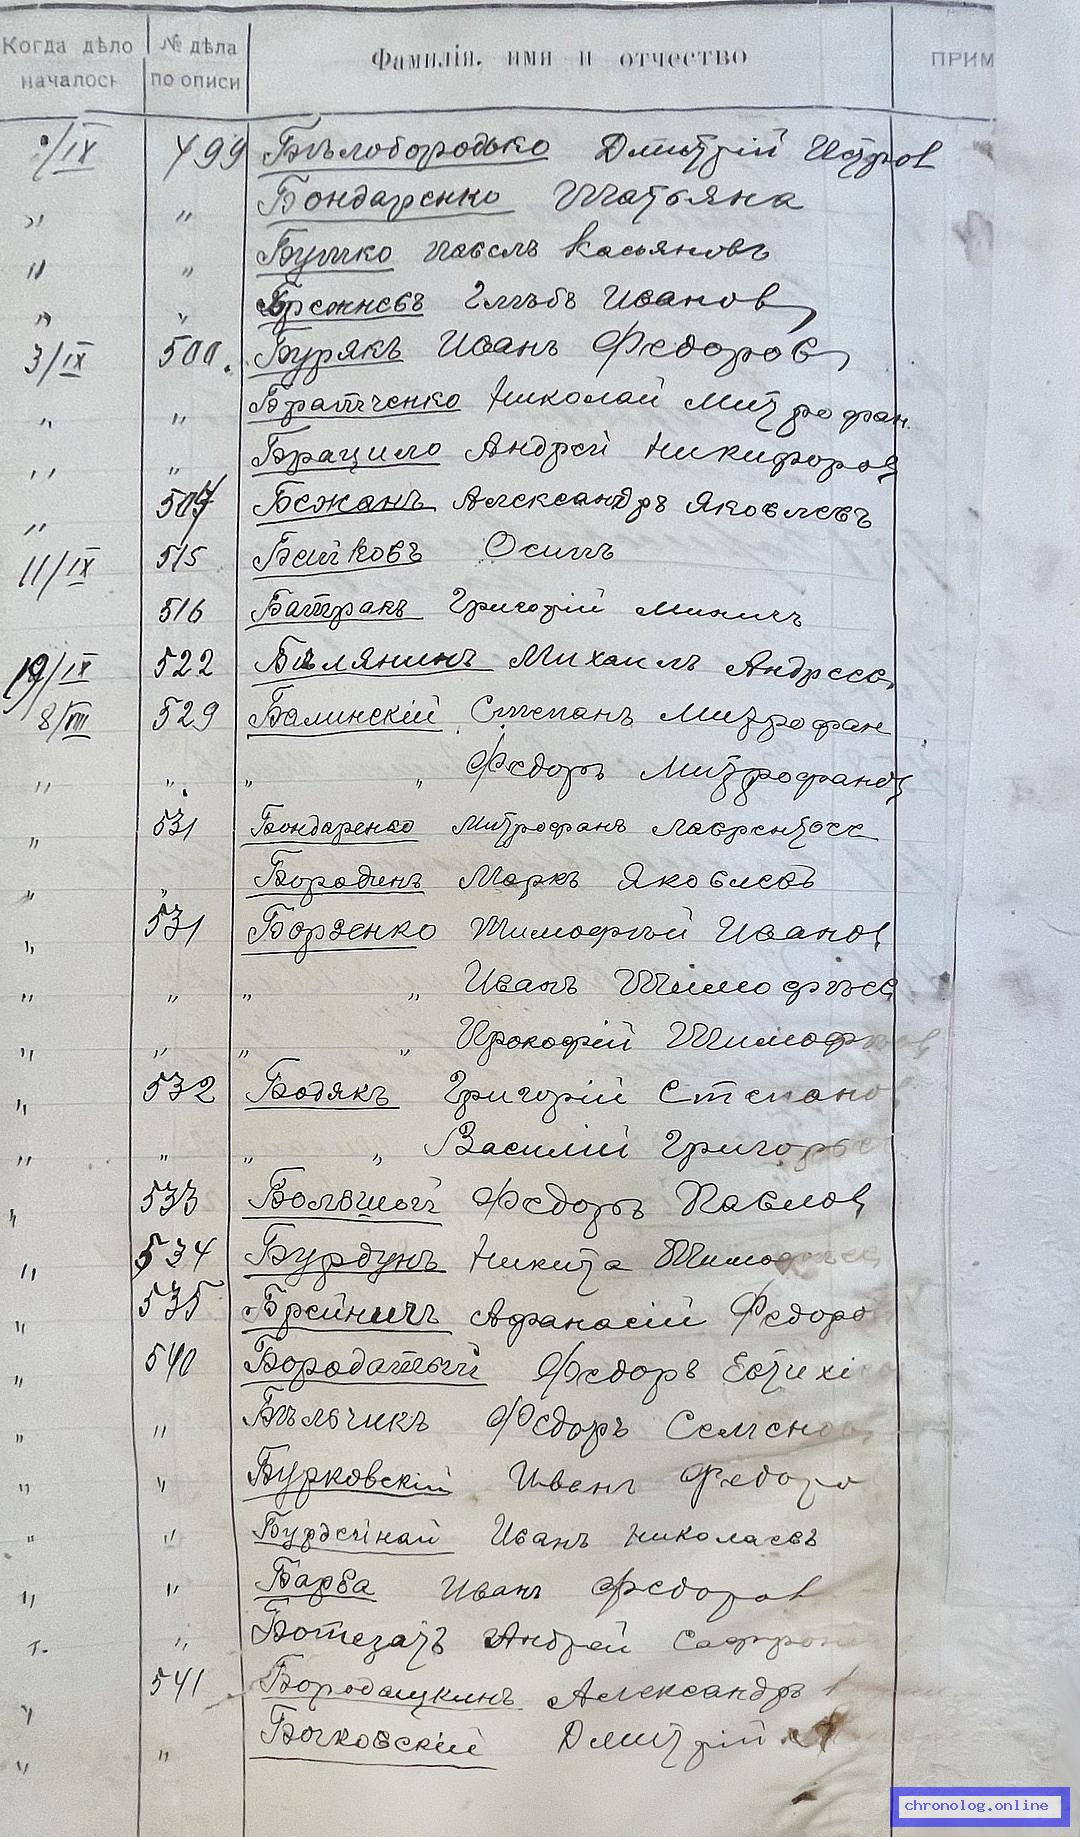 Когда дѣло № дѣла Фамилія, имя и отчество ПРИМ
началось по описи
/IX 499 Бѣлобородько Дмитрій Петров
„ „ Бондаренко Татьяна
„ „ Бутко Павелъ Касьяновъ
„ „ Брежневъ Глѣбъ Иванов
3/IX 500. Бурякъ Иванъ Федоров
„ „ Братченко Николай Митрофан.
„ „ Брацило Андрей Никифоров
„ 507 Бежанъ Александръ Яковлевъ
11/IX 515 Байковъ Осипъ
516 Батракъ Григорій Миничъ
19/IX 522 Бѣлянинъ Михаилъ Андреев
8/VIII 529 Балинскій Степанъ Митрофан
„ „ „ „ Федоръ Митрофанов
„ 531 Бондаренко Митрофанъ Лаврентьев
„ „ Бородинъ Маркъ Яковлевъ
„ 531 Борзенко Тимофѣй Иванов
„ „ „ „ Иванъ Тимофѣев
„ „ „ „ Прокофій Тимофѣев
„ 532 Бодякъ Григорій Степано
„ „ „ „ Василій Григорье
„ 533 Большой Федоръ Павлов
„ 534 Бурдунъ Никита Тимофѣев
„ 535 Брейничъ Афанасій Федоро
„ 540 Бородатый Федоръ Евтихі
„ „ Бѣльчикъ Федоръ Семенов
„ „ Бурковскій Иванъ Федоро
„ „ Бурдейный Иванъ Николаевъ
„ „ Барба Иванъ Федоров
„ „ Ботезатъ Андрей Сафрон
„ 541 Бородашкинъ Александръ
„ „ Бочковскій Дмитрій
chronolog.online